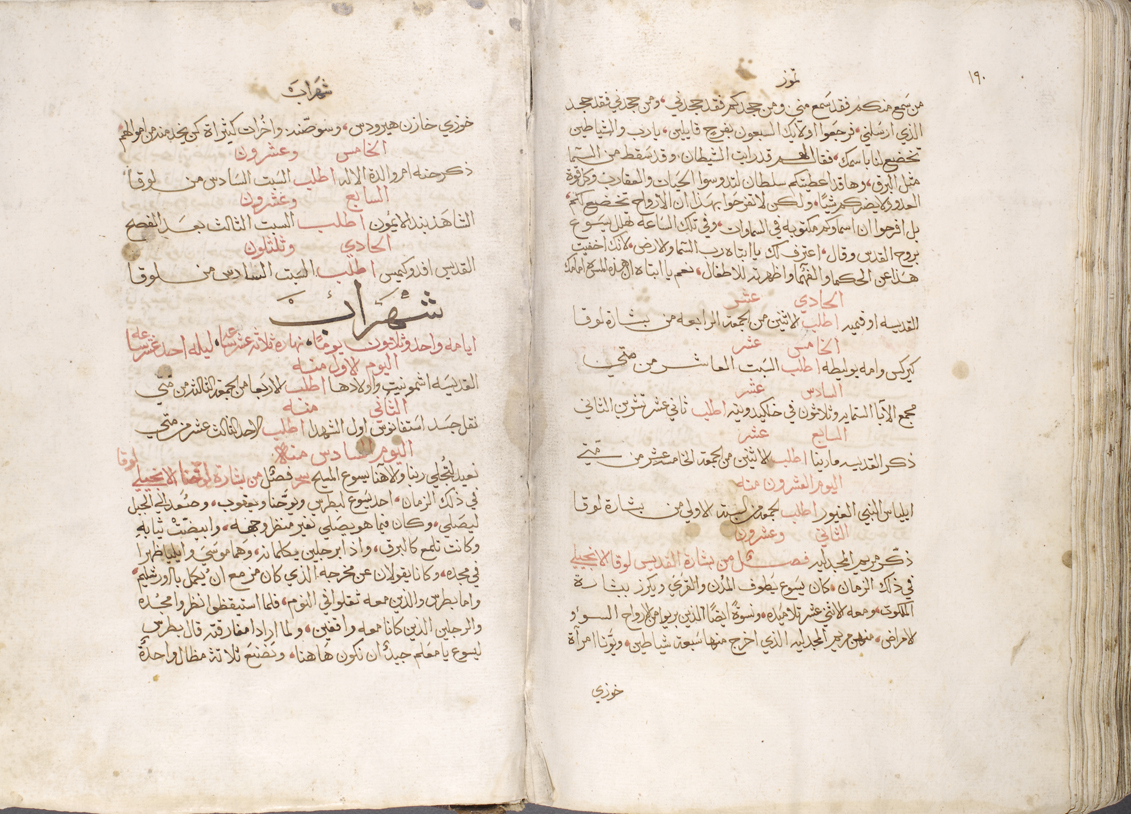 ١٩٠
تموز
من سمع منكم فقد سمع مني ومن جحدكم فقد جحدني، ومن جحدني فقد جحد
الذي ارسلني، فرجعوا اولايك السبعون بفرح قايلين، يارب والشياطين
تخضع لنا باسمك، فقال لهم قد رايت الشيطان وقد سقط من السما
مثل البرق، وهاقد اعطيتكم سلطان لتدوسوا الحيات والعقارب وكل قوة
العدو ولا يضركم شيا، ولكن لا تفرحوا بهذا ان الارواح تخضع لكم،
بل افرحوا ان اسماوكم مكتوبه في السماوات، وفي تلك الساعة تهلل يسوع
بروح القدس وقال، اعترف لك يا ابتاه رب السما والارض، لانك اخفيت
هذا عن الحكما والفهما واظهرته للاطفال، نعم يا ابتاه ان هذه المسرة امامك
الحادي عشر
القديسه اوفيميه اطلب الاثنين من الجمعه الرابعه من بشارة لوقا
الخامس عشر
كيركس وامه يوليطه اطلب السبت العاشر من متي
السادس عشر
مجمع الابا الستمايه وثلاثون في خلكيدونيه اطلب ثاني عشر تشرين الثاني
السابع عشر
ذكر القديسه مارينا اطلب الاثنين من الجمعه الخامسه عشر من متي
اليوم العشرون منه
ايلياس النبي الغيور اطلب الجمعه من السبه الاولي من بشارة لوقا
الثاني وعشرون
ذكر مريم المجدليه فصل من بشارة القديس لوقا الانجيلي
في ذلك الزمان، كان يسوع يطوف المدن والقري ويكرز ببشارة
الملكوت، ومعه الاثني عشر تلاميذه، ونسوة ايضا الذين بريوا من الارواح السوء و
الامراض، منهن مريم المجدليه الذي اخرج منها سبعة شياطين، ويونا امراة
خوزي
شهراب
خوزي خازن هيرودس، وسوصنه، واخرات كثيراة كن يخدمنه من اموالهم
الخامس وعشرون
ذكر حنه ام والدة الاله اطلب السبت السادس من لوقا
السابع وعشرون
الشاهد بندلايمون اطلب السبت الثالث بعد الفصح
الحادي وثلثون
القديس افدوكيمس اطلب السبت السادس من لوقا
شهراب
ايامه واحد وثلاثون يوما، نهاره ثلاثة عشر ساعه، ليله احد عشر ساعه
اليوم الاول منه
القديسه اشمونيت واولادها اطلب الاربعا من الجمعه الثالثه من متي
الثاني منه
نقل جسد استفانوس اول الشهدا اطلب الاحد الثالث عشر من متي
اليوم السادس منه
لعيد تجلي ربنا والاهنا يسوع المسيح فصل من بشارة لوقا الانجيلي
في ذلك الزمان، اخد يسوع لبطرس ويوحنا ويعقوب، وصعد الي الجبل
ليصلي، وكان فيما هو يصلي تغير منظر وجهه، وابيضت ثيابه
وكانت تلمع كالبرق، واذا برجلين يكلمانه، وهما موسي وايليا ظهرا
في مجده، وكانا يقولان عن مخرجه الذي كان مزمع ان يكمل باورشليم،
واما بطرس والذين معه ثقلوا في النوم، فلما استيقظوا نظروا مجده
والرجلين الذين كانا معه واقفين، ولما ارادا مفارقته قال بطرس
ليسوع يا معلم جيد ان نكون هاهنا، ونصنع ثلاثة مظال واحدة